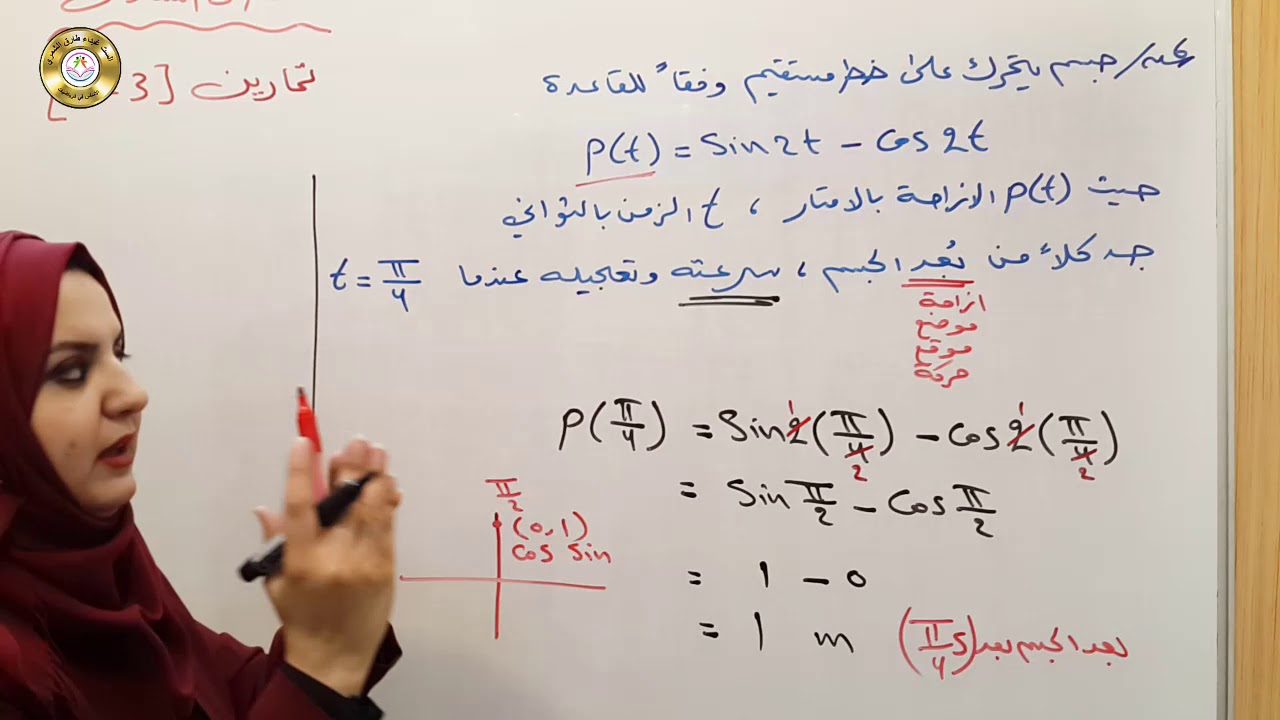 تمارين [3
مثال/ جسم يتحرك على خط مستقيم وفقاً للقاعدة
P(t) = Sin2t - Cos2t
حيث P(t) الازاحة بالامتار ، t الزمن بالثواني
جد كلاً من بُعد الجسم ، سرعته وتعجيله عندما t = π/4
ازاحة
موضع
موقع
حركة
P(π/4) = Sin2(π/4) - Cos2(π/4)
1 2 1 2
= Sin π/2 - Cos π/2
= 1 - 0
= 1 m
بعد الجسم بعد (π/4 s)
π/2
(0,1)
Cos Sin